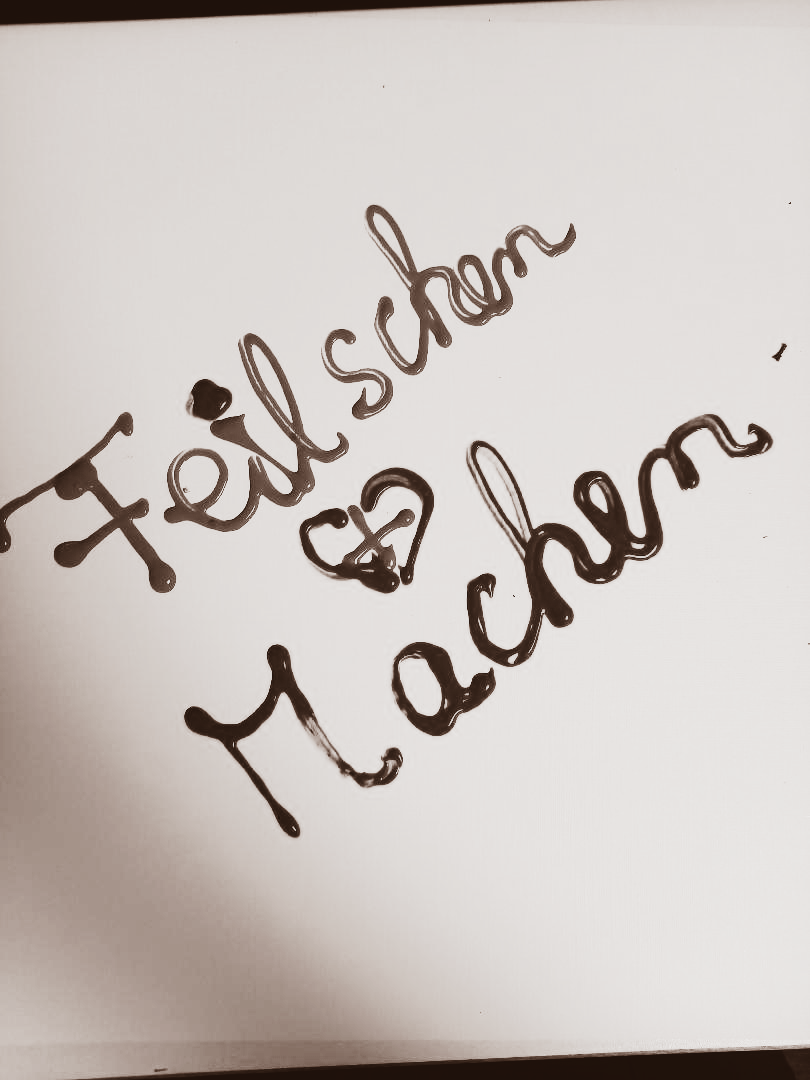 Feilschen
+
Machen